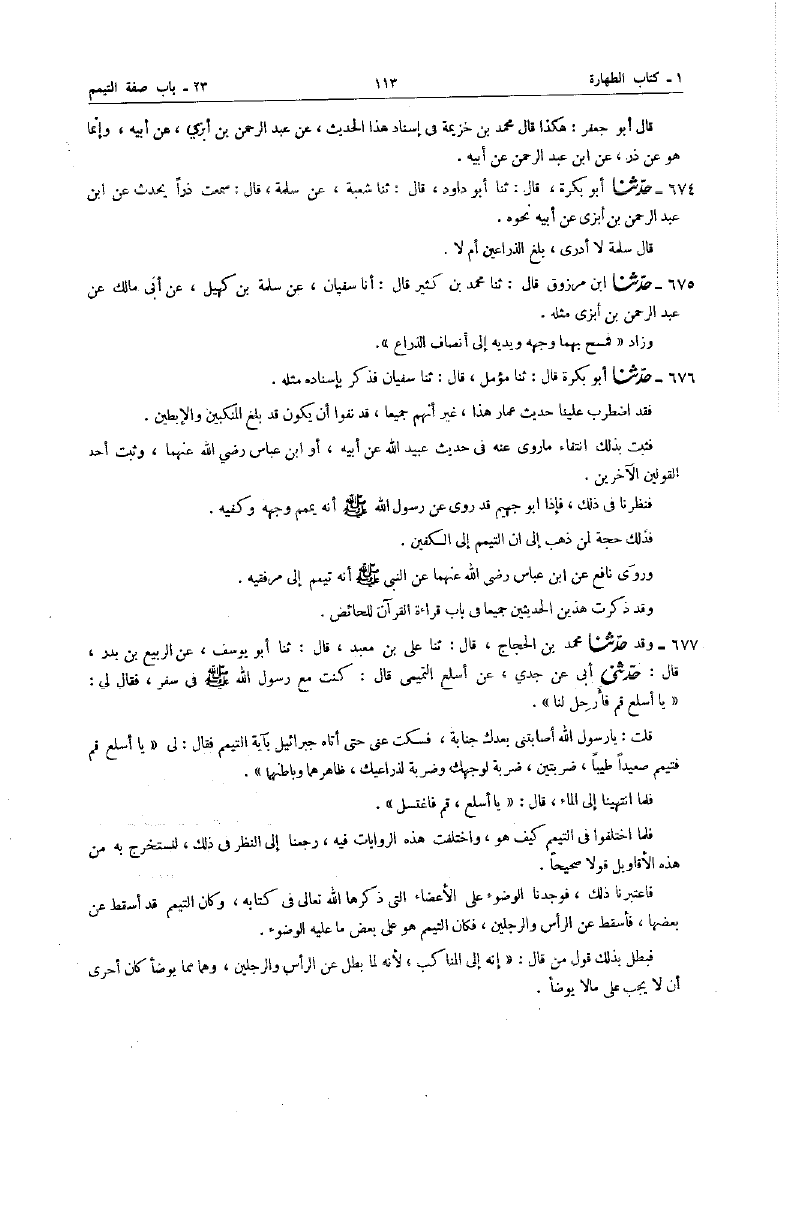 ١ - كتاب الطهارة ١١٣ ٢٣ - باب صفة التيمم
قال أبو جعفر : هكذا قال محمد بن خزيمة فى إسناد هذا الحديث ، عن عبد الرحمن بن أبزي ، عن أبيه ، وإنما
هو عن ذر ، عن ابن عبد الرحمن عن أبيه .
٦٧٤ - حدّثنا أبو بكرة ، قال : ثنا أبو داود ، قال : ثنا شعبة ، عن سلمة ، قال : سمعت ذراً يحدث عن ابن
عبد الرحمن بن أبزى عن أبيه نحوه .
قال سلمة لا أدرى ، بلغ الذراعين أم لا .
٦٧٥ - حدّثنا ابن مرزوق قال : ثنا محمد بن كثير قال : أنا سفيان ، عن سلمة بن كهيل ، عن أبى مالك عن
عبد الرحمن بن أبزى مثله .
وزاد « فمسح بهما وجهه ويديه إلى أنصاف الذراع ».
٦٧٦ - حدّثنا أبو بكرة قال : ثنا مؤمل ، قال : ثنا سفيان فذكر بإسناده مثله .
فقد اضطرب علينا حديث عمار هذا ، غير أنهم جميعا ، قد نفوا أن يكون قد بلغ المنكبين والإبطين .
فثبت بذلك انتفاء ماروى عنه فى حديث عبيد الله عن أبيه ، أو ابن عباس رضي الله عنهما ، وثبت أحد
القولين الآخرين .
فنظرنا فى ذلك ، فإذا ابو جهيم قد روى عن رسول الله ﷺ أنه يمم وجهه وكفيه .
فذلك حجة لمن ذهب إلى ان التيمم إلى الكفين .
وروى نافع عن ابن عباس رضى الله عنهما عن النبي ﷺ أنه تيمم إلى مرفقيه .
وقد ذكرت هذين الحديثين جميعا فى باب قراءة القرآن للحائض .
٦٧٧ - وقد حدّثنا محمد بن الحجاج ، قال : ثنا على بن معبد ، قال : ثنا أبو يوسف ، عن الربيع بن بدر ،
قال : حدّثنى أبى عن جدي ، عن أسلع التميمى قال : كنت مع رسول الله ﷺ فى سفر ، فقال لى :
« يا أسلع قم فأرحل لنا » .
قلت : يارسول الله أصابتنى بعدك جنابة ، فسكت عنى حتى أتاه جبرائيل بآية التيمم فقال : لى « يا أسلع قم
فتيمم صعيداً طيباً ، ضربتين ، ضربة لوجهك وضربة لذراعيك ، ظاهرهما وباطنهما » .
فلما انتهينا إلى الماء ، قال : « يا أسلع ، قم فاغتسل » .
فلما اختلفوا فى التيمم كيف هو ، واختلفت هذه الروايات فيه ، رجعنا إلى النظر فى ذلك ، لنستخرج به من
هذه الأقاويل قولا صحيحاً .
فاعتبرنا ذلك ، فوجدنا الوضوء على الأعضاء التى ذكرها الله تعالى فى كتابه ، وكان التيمم قد أسقط عن
بعضها ، فأسقط عن الرأس والرجلين ، فكان التيمم هو على بعض ما عليه الوضوء .
فبطل بذلك قول من قال : « إنه إلى المناكب ، لأنه لما بطل عن الرأس والرجلين ، وهما مما يوضأ كان أحرى
أن لا يجب على مالا يوضأ .